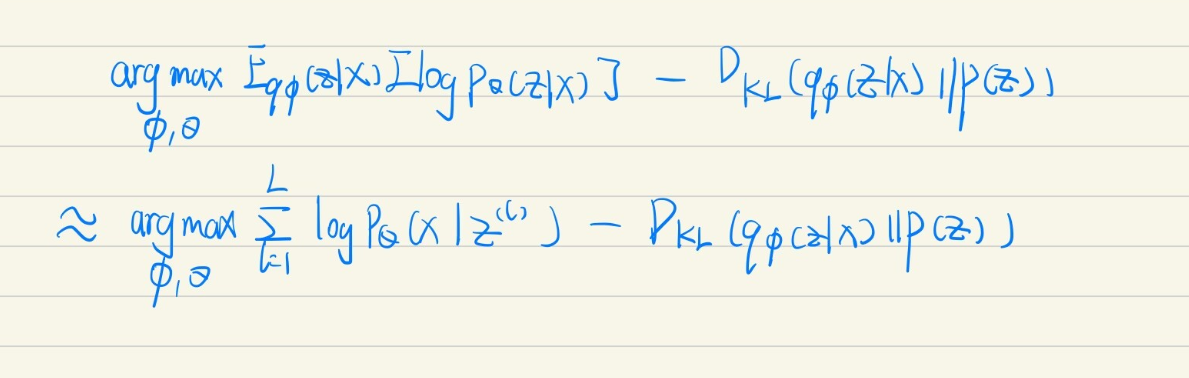 arg max_{φ,θ} E_{qφ(z|x)}[log p_θ(z|x)] − D_{KL}(q_φ(z|x) || p(z))
≈ arg max_{φ,θ} ∑_{l=1}^{L} log p_θ(x|z^{(l)}) − D_{KL}(q_φ(z|x) || p(z))